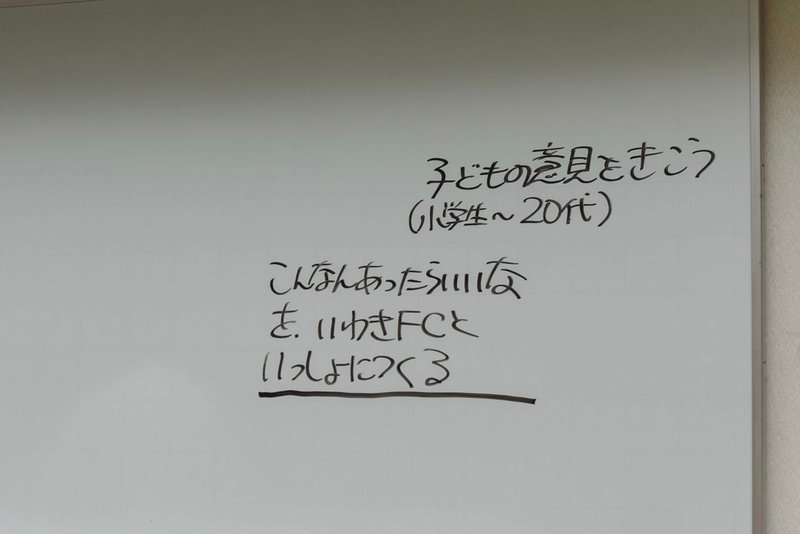 子どもの意見をきこう
(小学生～20代)
こんなんあったらいいな
を、いわきFCと
いっしょにつくる